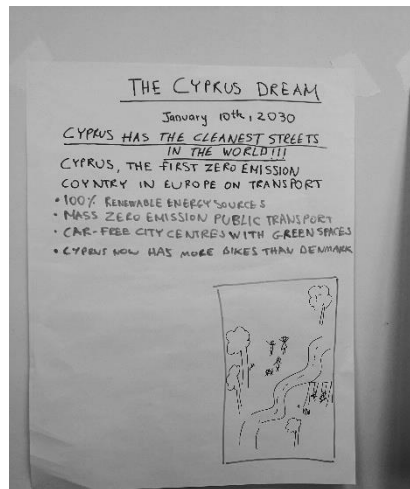 THE CYPRUS DREAM
January 10th, 2030
CYPRUS HAS THE CLEANEST STREETS
IN THE WORLD!!!
CYPRUS, THE FIRST ZERO EMISSION
COYNTRY IN EUROPE ON TRANSPORT
• 100% RENEWABLE ENERGY SOURCES
• MASS ZERO EMISSION PUBLIC TRANSPORT
• CAR-FREE CITY CENTRES WITH GREEN SPACES
• CYPRUS NOW HAS MORE BIKES THAN DENMARK